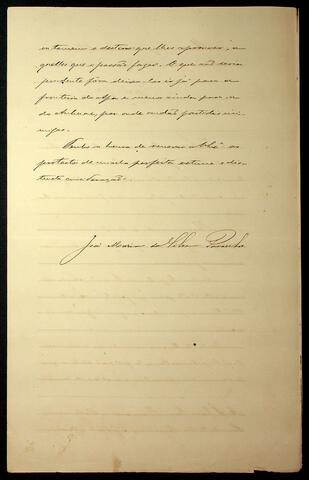 entermos o destino que lhes aprouver, a
quelles que o possão fazer. O que não seria
prudente fôra deixal-os ir já para a
fronteira do Apa e menos ainda para a
do Atibucú, por onde andão partidas ini-
migas.
Tenho a honra de renovar a V. Exª os
protestos de minha perfeita estima e dis-
tincta consideração.
José Maria da Silva Paranhos